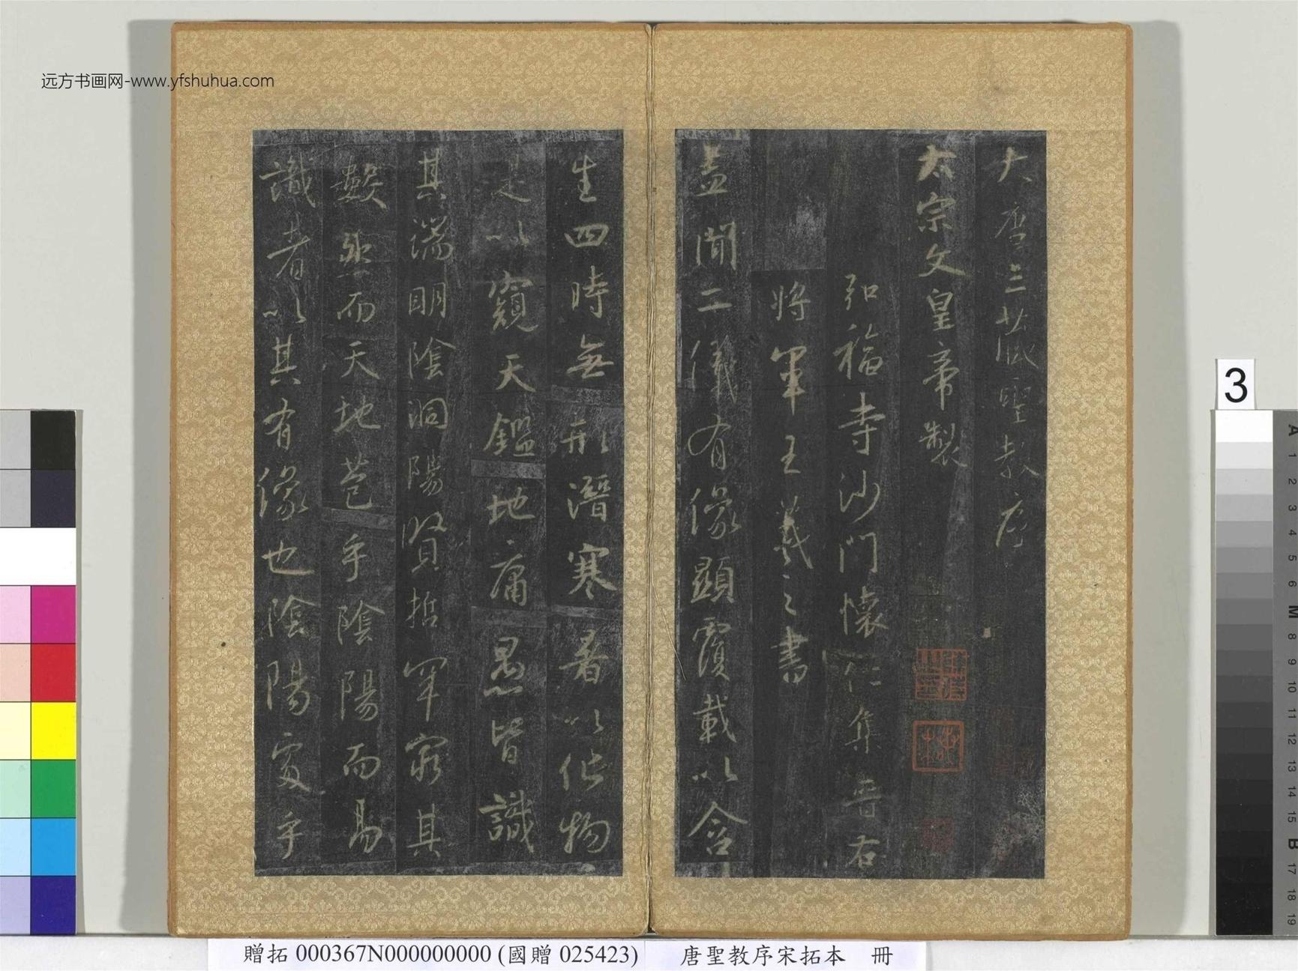 远方书画网-www.yfshuhua.com
大唐三藏聖教序
太宗文皇帝製
弘福寺沙門懷仁集晉右
將軍王羲之書
蓋聞二儀有像顯覆載以含
生四時無形潛寒暑以化物
是以窺天鑑地庸愚皆識
其端明陰洞陽賢哲罕窮其
數然而天地苞乎陰陽而易
識者以其有像也陰陽處乎
3
A
1
2
3
4
5
M
8
9
10
11
12
13
14
15
B
17
18
19
贈拓 000367N000000000 (國贈 025423) 唐聖教序宋拓本 冊